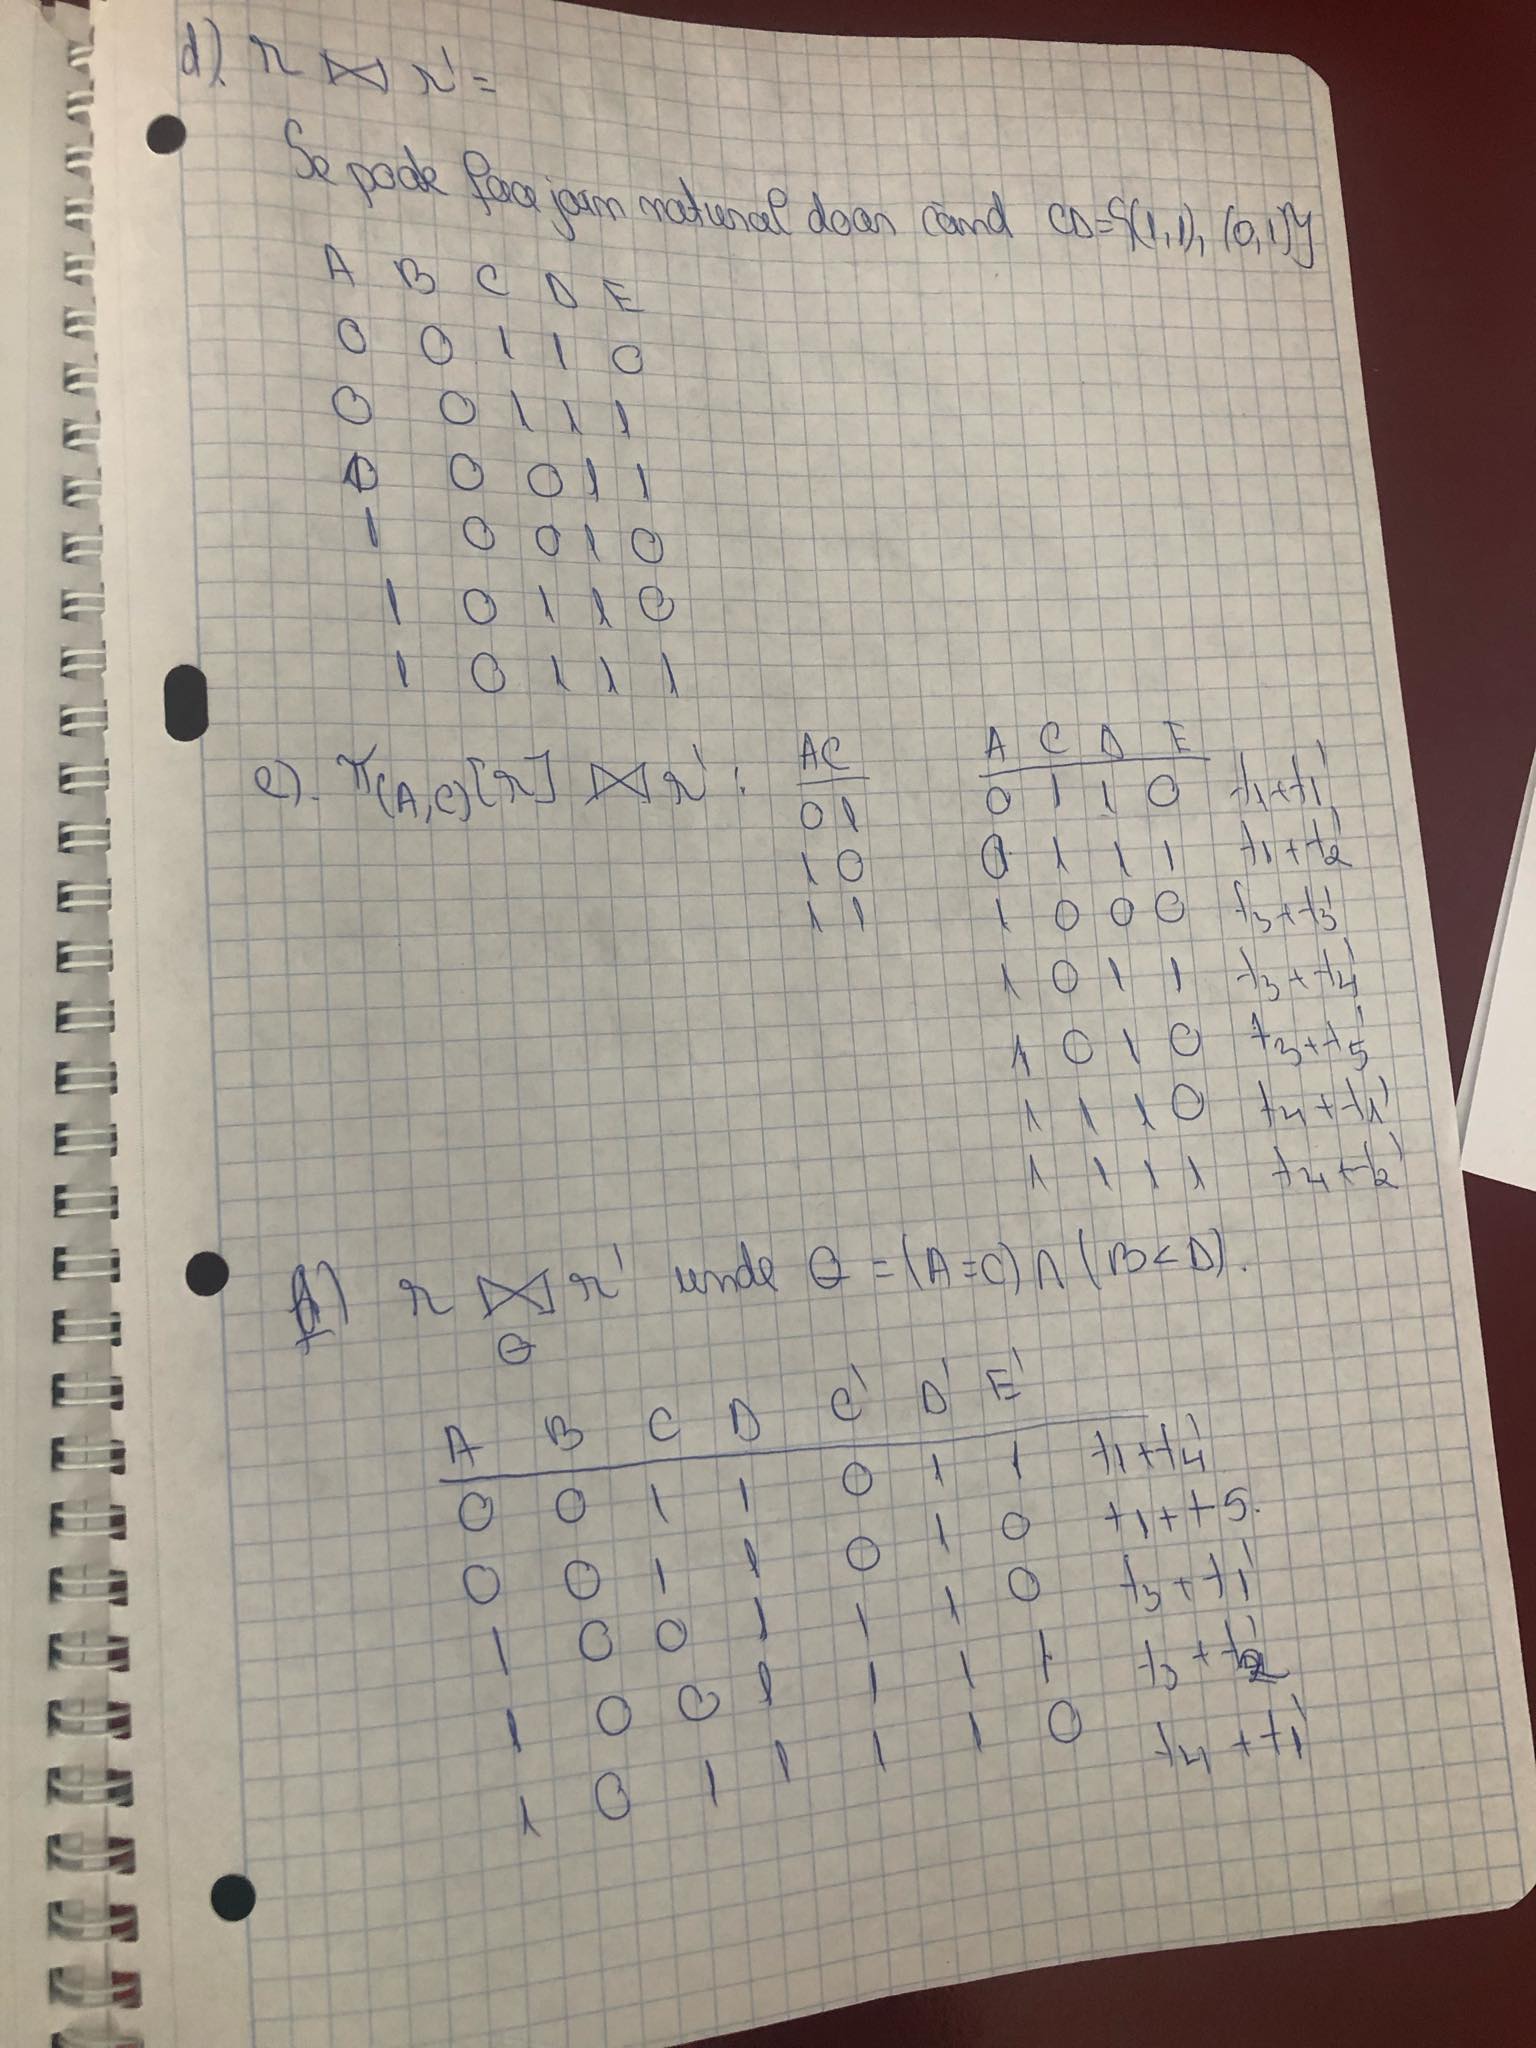 d). r ⋈ r' =
Se poate face join natural doar când CD={(1,1), (0,1)}
A B C D E
0 0 1 1 0
0 0 1 1 1
0 0 1 1
1 0 0 1 0
1 0 1 1 0
1 0 1 1 1
e). π(A,C)[r] ⋈ r' :
AC
01
10
11
A C D E
0 1 1 0 t1+t1'
0 1 1 1 t1+t2'
1 0 0 0 t3+t3'
1 0 1 1 t3+t4'
1 0 1 0 t3+t5'
1 1 1 0 t4+t1'
1 1 1 1 t4+t2'
f) r ⋈ r' unde Θ = (A=C) ∧ (B<D).
Θ
A B C D C' D' E'
0 0 1 1 0 1 1 t1+t4'
0 0 1 1 0 1 0 t1+t5.
1 0 0 1 1 1 0 t3+t1'
1 0 0 1 1 1 1 t3+t2'
1 0 1 1 1 1 0 t4+t1'